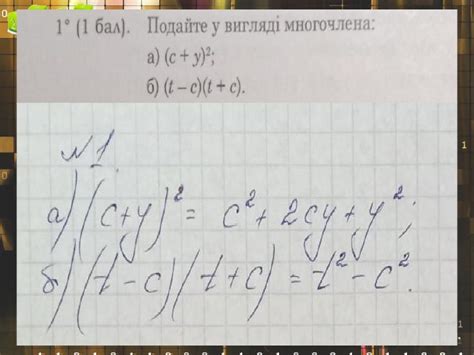 1° (1 бал). Подайте у вигляді многочлена:
а) (c + y)²;
б) (t – c)(t + c).
№1.
а) (c+y)² = c² + 2cy + y²;
б) (t – c)(t + c) = t² – c².